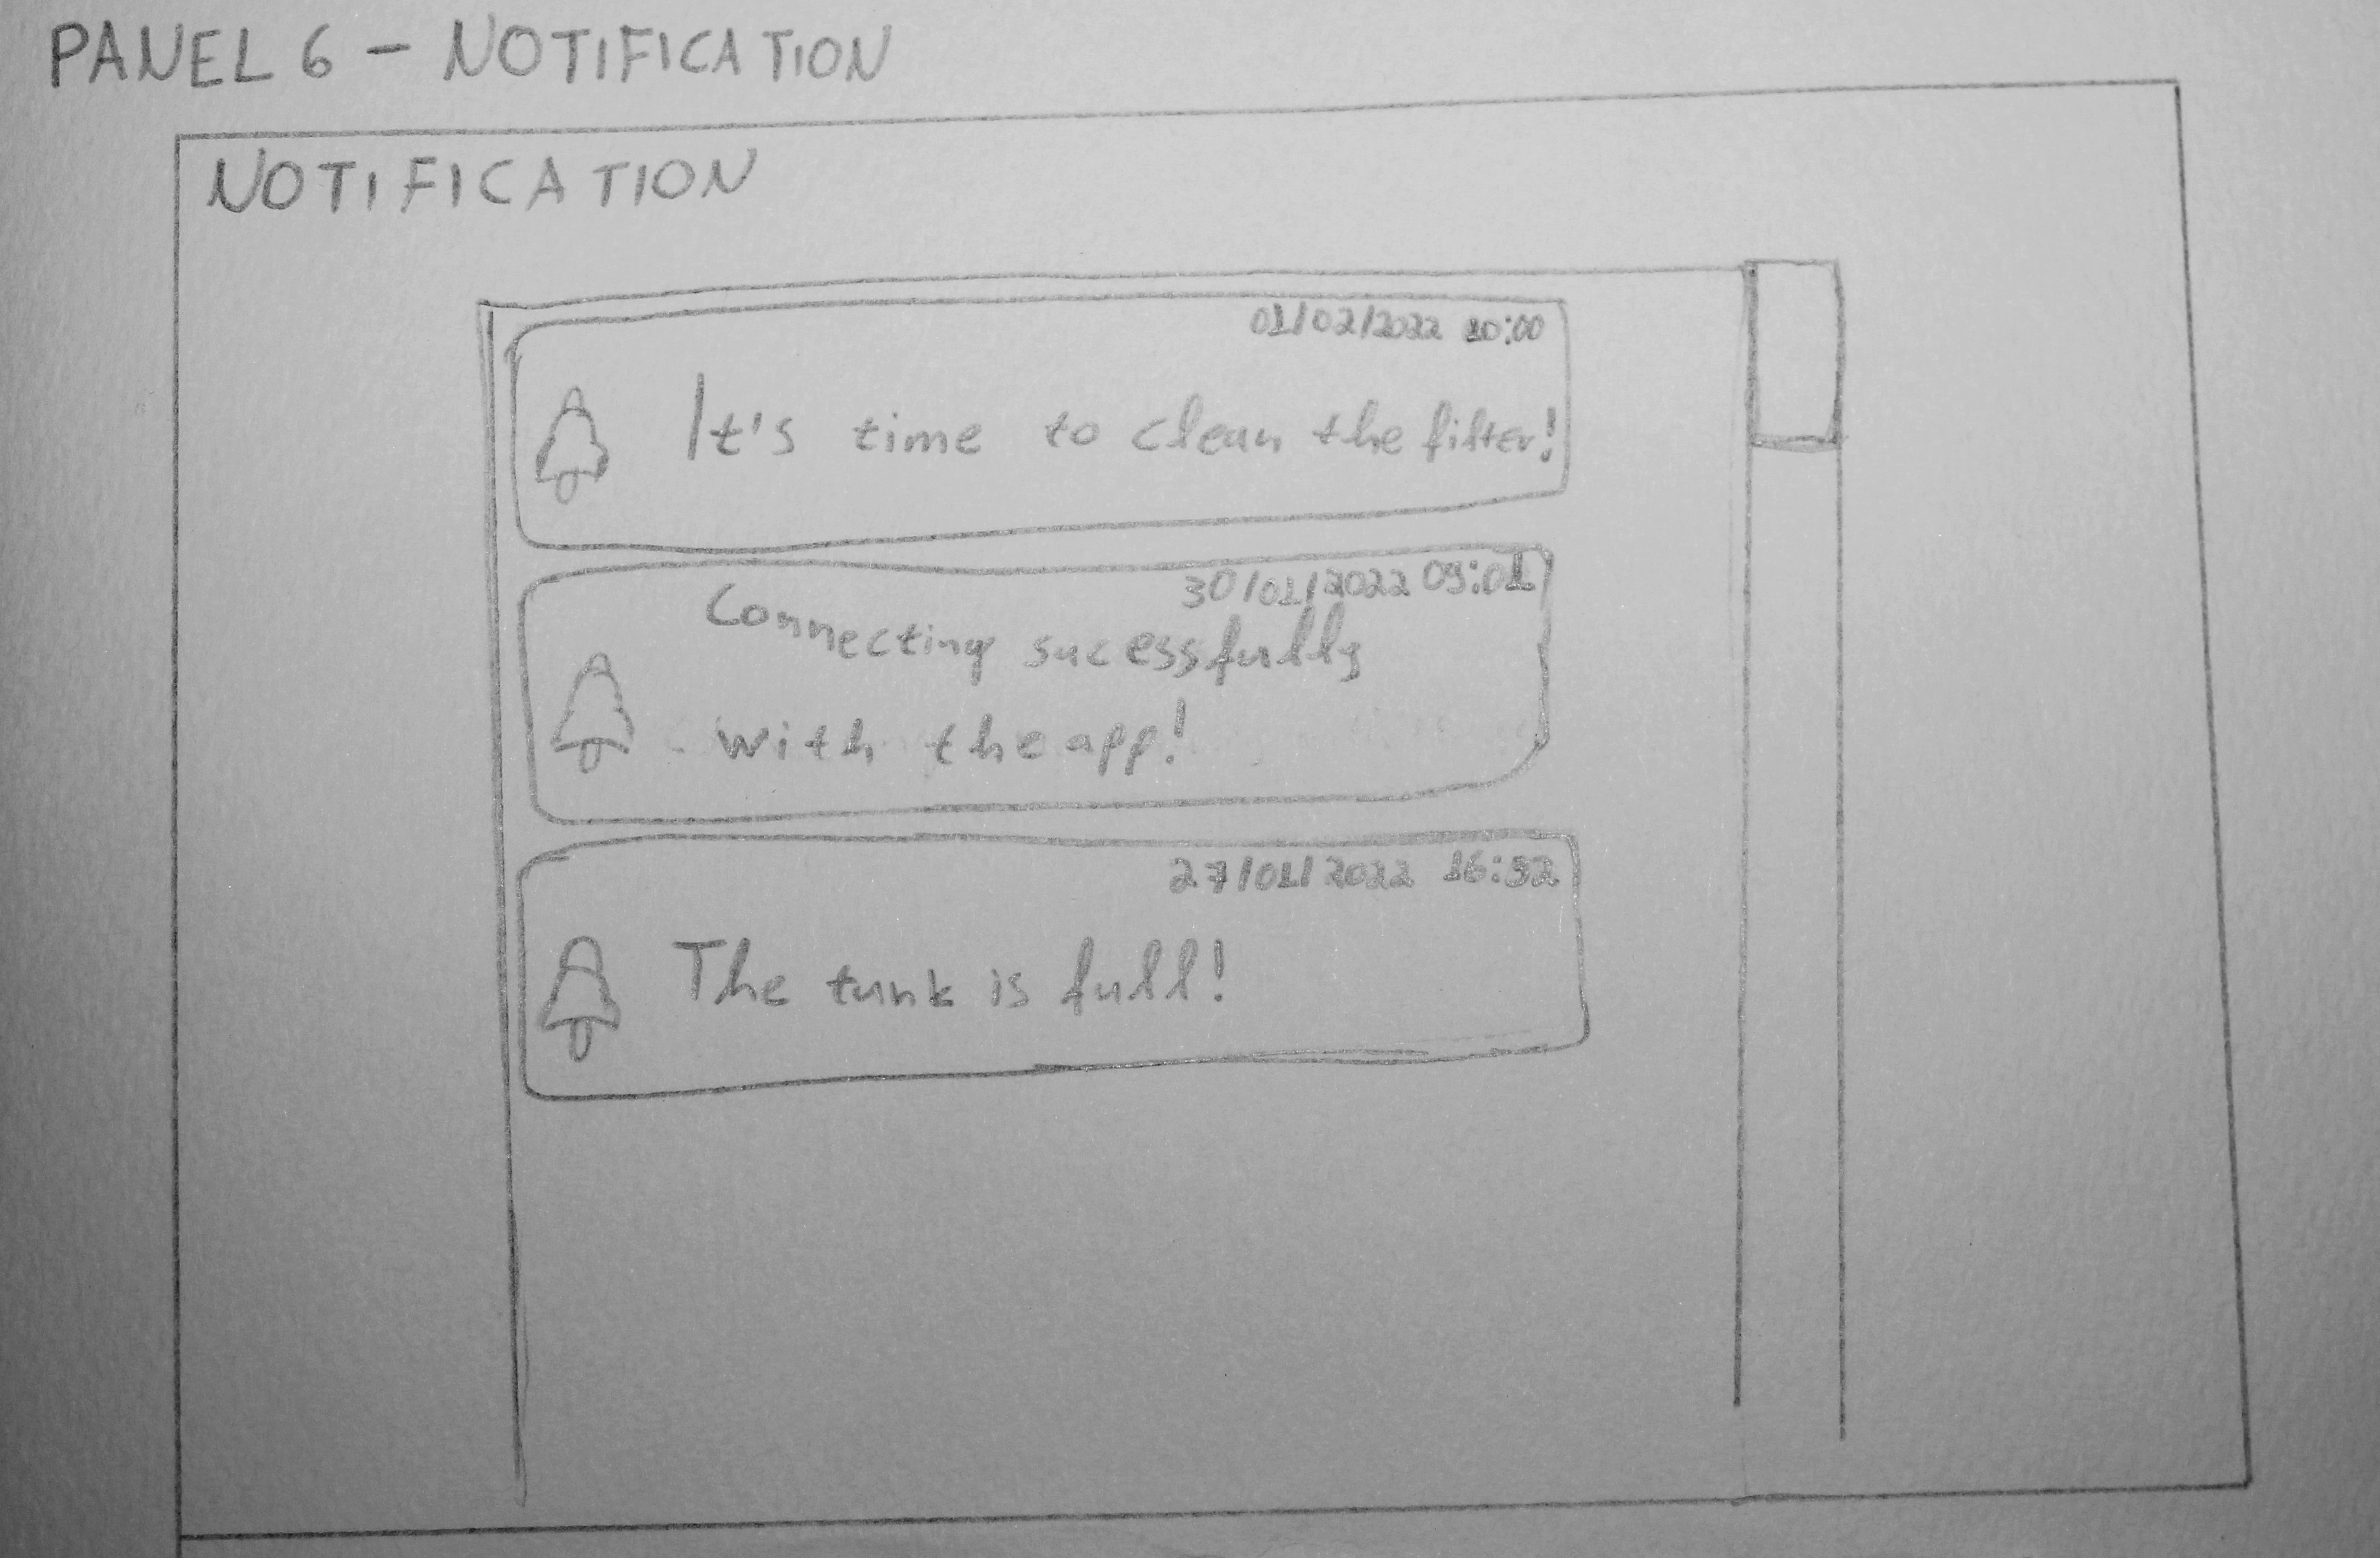 PANEL 6 - NOTIFICATION
NOTIFICATION
01/02/2022 10:00
It's time to clean the filter!
30/01/2022 09:01
Connecting sucessfully
with the app!
27/01/2022 16:52
The tank is full!